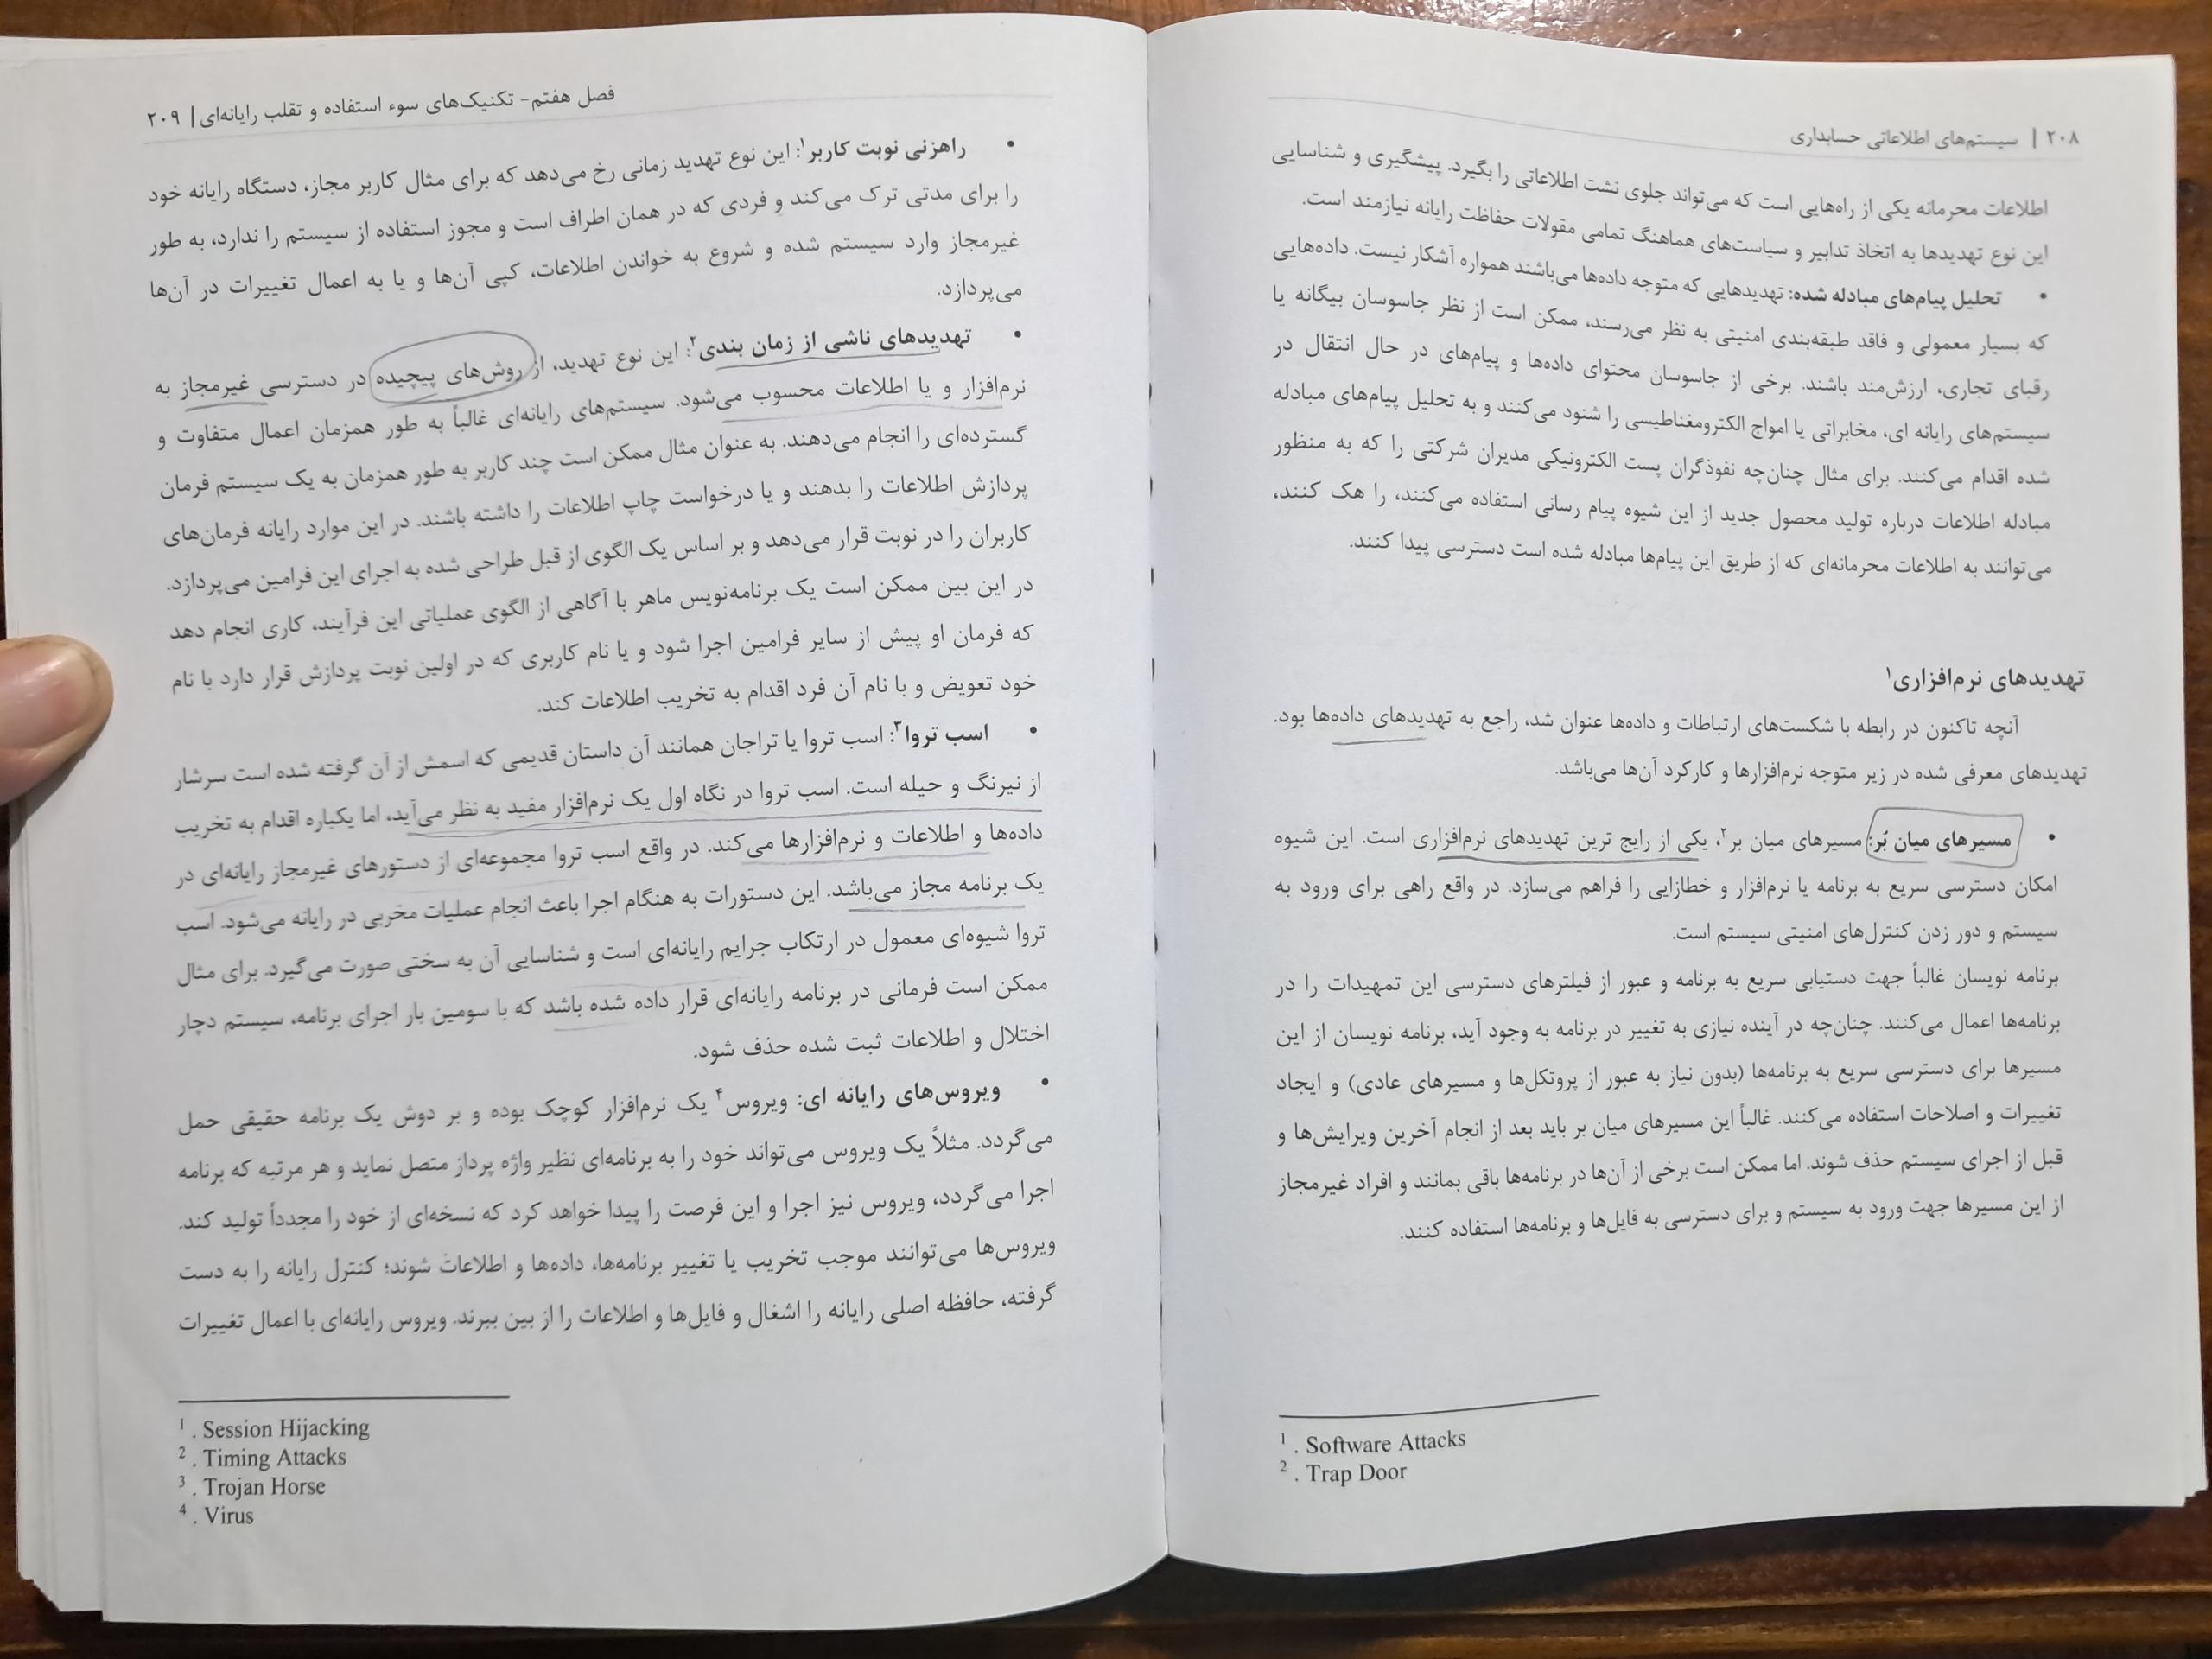 ۲۰۸ | سیستم‌های اطلاعاتی حسابداری
اطلاعات محرمانه یکی از راه‌هایی است که می‌تواند جلوی نشت اطلاعاتی را بگیرد. پیشگیری و شناسایی
این نوع تهدیدها به اتخاذ تدابیر و سیاست‌های هماهنگ تمامی مقولات حفاظت رایانه نیازمند است.
• تحلیل پیام‌های مبادله شده: تهدیدهایی که متوجه داده‌ها می‌باشند همواره آشکار نیست. داده‌هایی
که بسیار معمولی و فاقد طبقه‌بندی امنیتی به نظر می‌رسند، ممکن است از نظر جاسوسان بیگانه یا
رقبای تجاری، ارزش‌مند باشند. برخی از جاسوسان محتوای داده‌ها و پیام‌های در حال انتقال در
سیستم‌های رایانه ای، مخابراتی یا امواج الکترومغناطیسی را شنود می‌کنند و به تحلیل پیام‌های مبادله
شده اقدام می‌کنند. برای مثال چنان‌چه نفوذگران پست الکترونیکی مدیران شرکتی را که به منظور
مبادله اطلاعات درباره تولید محصول جدید از این شیوه پیام رسانی استفاده می‌کنند، را هک کنند،
می‌توانند به اطلاعات محرمانه‌ای که از طریق این پیام‌ها مبادله شده است دسترسی پیدا کنند.
تهدیدهای نرم‌افزاری۱
آنچه تاکنون در رابطه با شکست‌های ارتباطات و داده‌ها عنوان شد، راجع به تهدیدهای داده‌ها بود.
تهدیدهای معرفی شده در زیر متوجه نرم‌افزارها و کارکرد آن‌ها می‌باشد.
• مسیرهای میان بُر: مسیرهای میان بر۲، یکی از رایج ترین تهدیدهای نرم‌افزاری است. این شیوه
امکان دسترسی سریع به برنامه یا نرم‌افزار و خطازایی را فراهم می‌سازد. در واقع راهی برای ورود به
سیستم و دور زدن کنترل‌های امنیتی سیستم است.
برنامه نویسان غالباً جهت دستیابی سریع به برنامه و عبور از فیلترهای دسترسی این تمهیدات را در
برنامه‌ها اعمال می‌کنند. چنان‌چه در آینده نیازی به تغییر در برنامه به وجود آید، برنامه نویسان از این
مسیرها برای دسترسی سریع به برنامه‌ها (بدون نیاز به عبور از پروتکل‌ها و مسیرهای عادی) و ایجاد
تغییرات و اصلاحات استفاده می‌کنند. غالباً این مسیرهای میان بر باید بعد از انجام آخرین ویرایش‌ها و
قبل از اجرای سیستم حذف شوند. اما ممکن است برخی از آن‌ها در برنامه‌ها باقی بمانند و افراد غیرمجاز
از این مسیرها جهت ورود به سیستم و برای دسترسی به فایل‌ها و برنامه‌ها استفاده کنند.
1 . Software Attacks
2 . Trap Door
فصل هفتم- تکنیک‌های سوء استفاده و تقلب رایانه‌ای | ۲۰۹
• راهزنی نوبت کاربر۱: این نوع تهدید زمانی رخ می‌دهد که برای مثال کاربر مجاز، دستگاه رایانه خود
را برای مدتی ترک می‌کند و فردی که در همان اطراف است و مجوز استفاده از سیستم را ندارد، به طور
غیرمجاز وارد سیستم شده و شروع به خواندن اطلاعات، کپی آن‌ها و یا به اعمال تغییرات در آن‌ها
می‌پردازد.
• تهدیدهای ناشی از زمان بندی۲: این نوع تهدید، از روش‌های پیچیده در دسترسی غیرمجاز به
نرم‌افزار و یا اطلاعات محسوب می‌شود. سیستم‌های رایانه‌ای غالباً به طور همزمان اعمال متفاوت و
گسترده‌ای را انجام می‌دهند. به عنوان مثال ممکن است چند کاربر به طور همزمان به یک سیستم فرمان
پردازش اطلاعات را بدهند و یا درخواست چاپ اطلاعات را داشته باشند. در این موارد رایانه فرمان‌های
کاربران را در نوبت قرار می‌دهد و بر اساس یک الگوی از قبل طراحی شده به اجرای این فرامین می‌پردازد.
در این بین ممکن است یک برنامه‌نویس ماهر با آگاهی از الگوی عملیاتی این فرآیند، کاری انجام دهد
که فرمان او پیش از سایر فرامین اجرا شود و یا نام کاربری که در اولین نوبت پردازش قرار دارد با نام
خود تعویض و با نام آن فرد اقدام به تخریب اطلاعات کند.
• اسب تروا۳: اسب تروا یا تراجان همانند آن داستان قدیمی که اسمش از آن گرفته شده است سرشار
از نیرنگ و حیله است. اسب تروا در نگاه اول یک نرم‌افزار مفید به نظر می‌آید، اما یکباره اقدام به تخریب
داده‌ها و اطلاعات و نرم‌افزارها می‌کند. در واقع اسب تروا مجموعه‌ای از دستورهای غیرمجاز رایانه‌ای در
یک برنامه مجاز می‌باشد. این دستورات به هنگام اجرا باعث انجام عملیات مخربی در رایانه می‌شود. اسب
تروا شیوه‌ای معمول در ارتکاب جرایم رایانه‌ای است و شناسایی آن به سختی صورت می‌گیرد. برای مثال
ممکن است فرمانی در برنامه رایانه‌ای قرار داده شده باشد که با سومین بار اجرای برنامه، سیستم دچار
اختلال و اطلاعات ثبت شده حذف شود.
• ویروس‌های رایانه ای: ویروس۴ یک نرم‌افزار کوچک بوده و بر دوش یک برنامه حقیقی حمل
می‌گردد. مثلاً یک ویروس می‌تواند خود را به برنامه‌ای نظیر واژه پرداز متصل نماید و هر مرتبه که برنامه
اجرا می‌گردد، ویروس نیز اجرا و این فرصت را پیدا خواهد کرد که نسخه‌ای از خود را مجدداً تولید کند.
ویروس‌ها می‌توانند موجب تخریب یا تغییر برنامه‌ها، داده‌ها و اطلاعات شوند؛ کنترل رایانه را به دست
گرفته، حافظه اصلی رایانه را اشغال و فایل‌ها و اطلاعات را از بین ببرند. ویروس رایانه‌ای با اعمال تغییرات
1 . Session Hijacking
2 . Timing Attacks
3 . Trojan Horse
4 . Virus